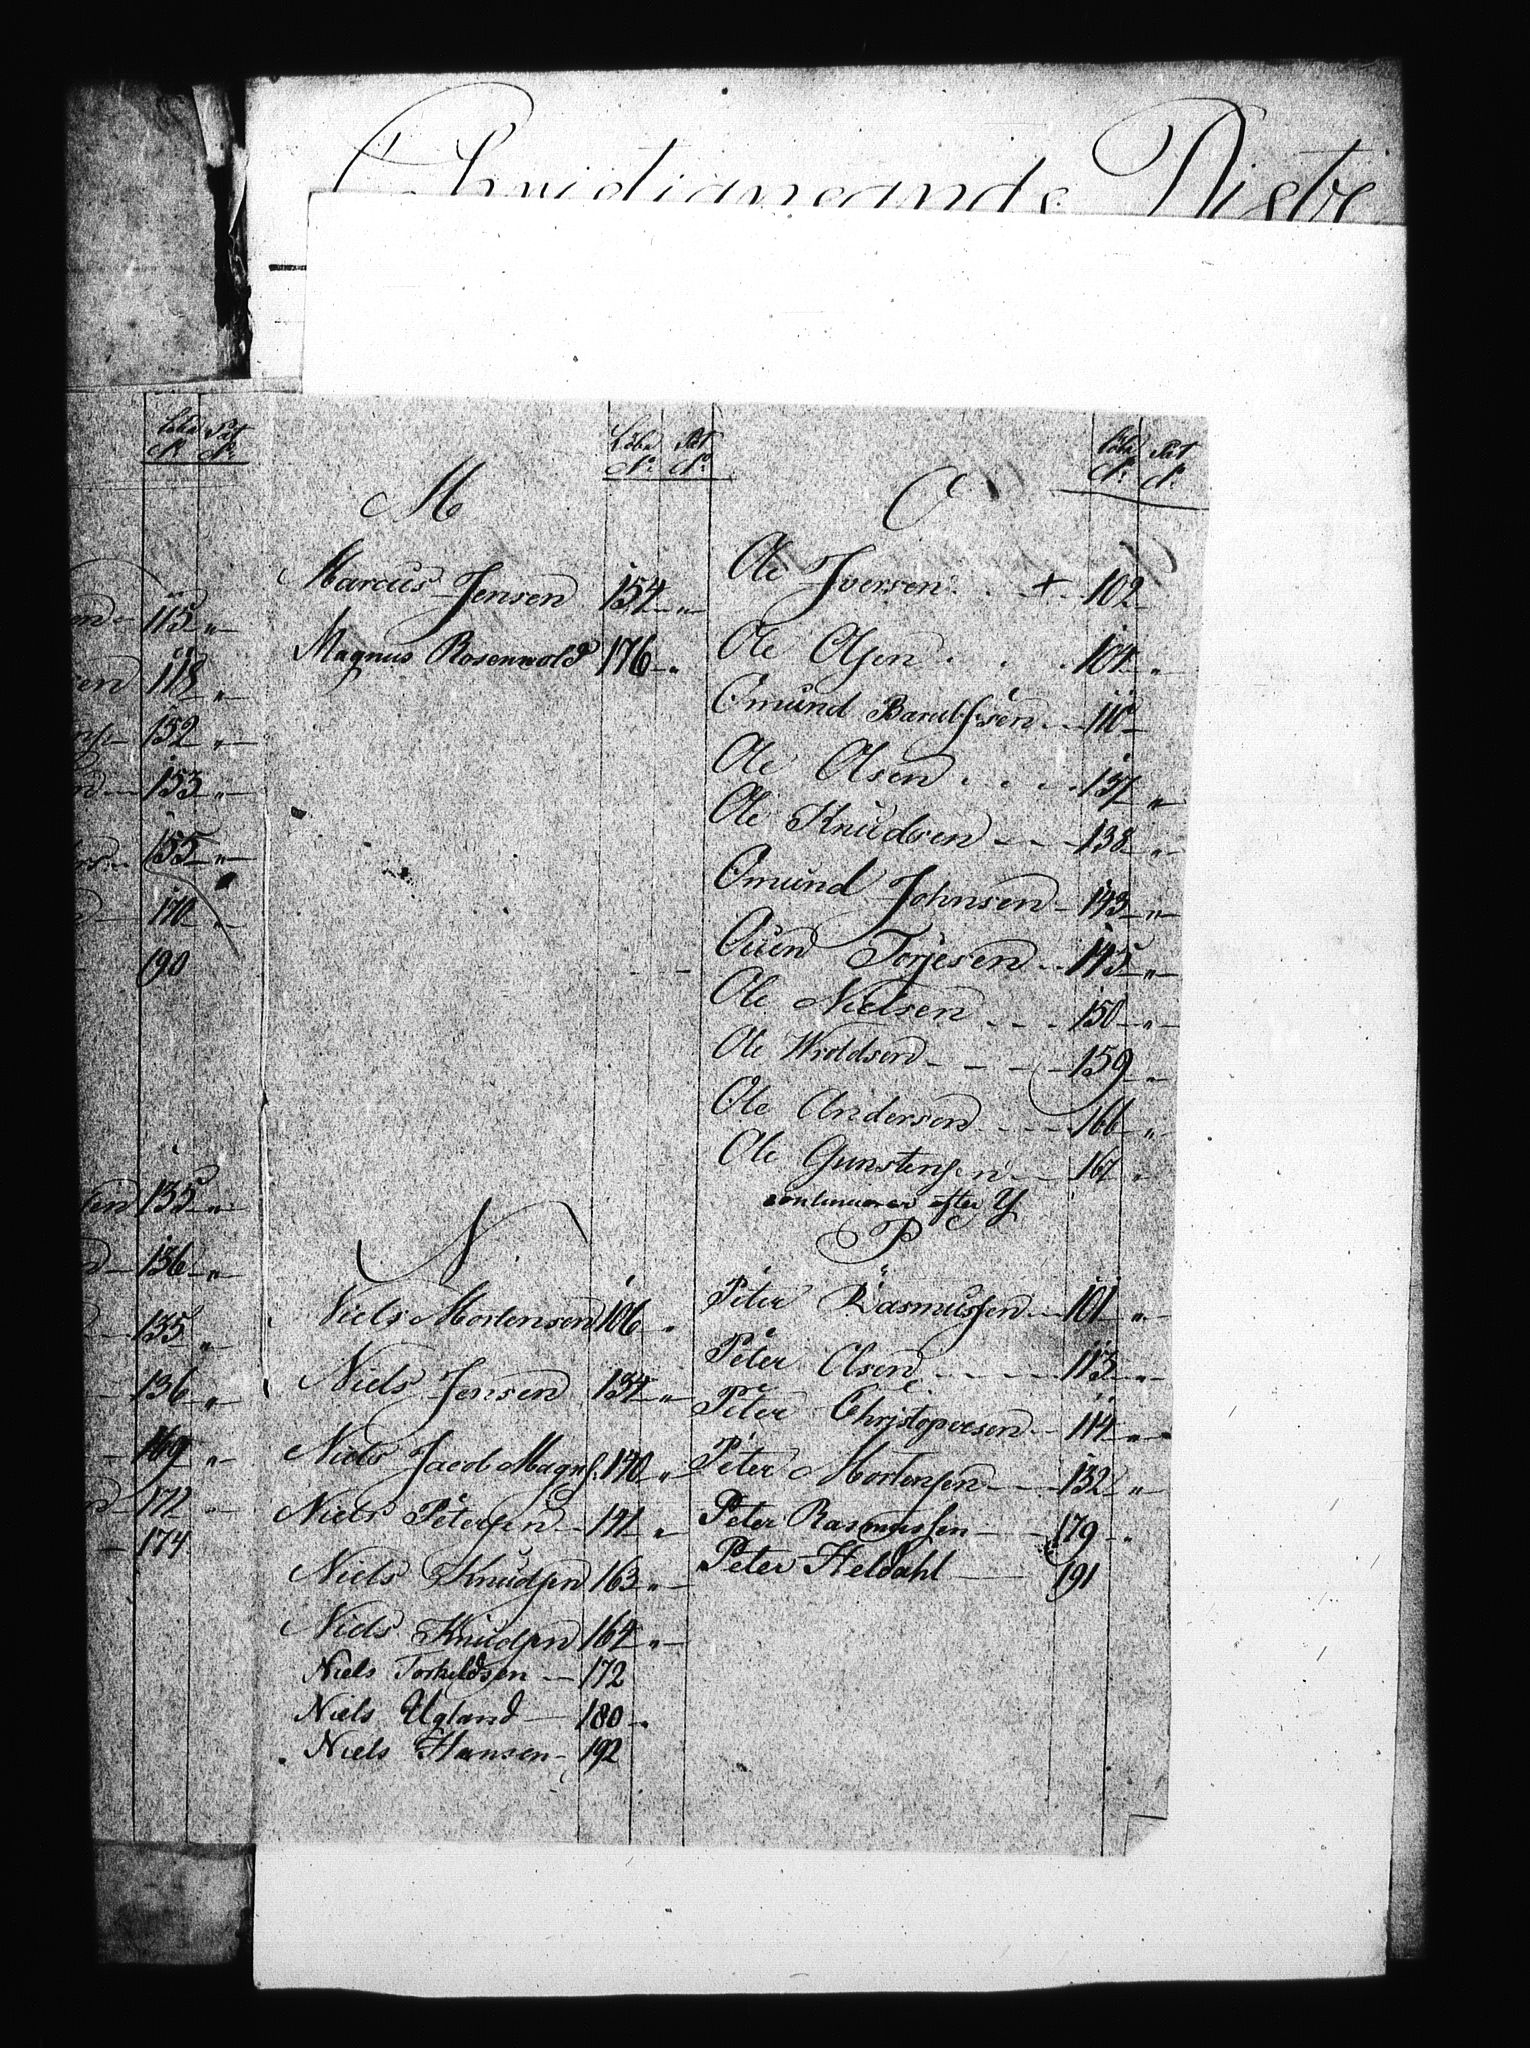 Christiansands Distr
Løbe Pat
N° N°
115 "
118 "
152 "
153 "
155 "
170 "
190
135 "
136 "
135 "
136 "
169 "
172 "
174
Løbe Pat
N° N°
M
Marcus Jensen 154 "
Magnus Rosenwold 176 "
N
Niels Mortensen 106 "
Niels Jensen 134 "
Niels Jacob Magns. 140 "
Niels Petersen 141 "
Niels Knudsen 163 "
Niels Knudsen 164 "
Niels Torkeldsen 172
Niels Ugland 180 "
Niels Hansen 192
Løbe Pat
N° N°
O
Ole Iversen + 102
Ole Olsen 104 "
Omund Olsen 137 "
Ole Knudsen 138 "
Omund Johnsen 143 "
Ouen Torjesen 145 "
Ole Nielsen 150 "
Ole Wroldsen 159 "
Ole Andersen 166 "
Ole Gunstensen 167 "
continueres efter Y
P
Peter Rasmussen 101 "
Peter Olsen 113 "
Peter Christopersen 114 "
Peter Mortensen 132 "
Peter Rasmussen 179 "
Peter Heldahl 191